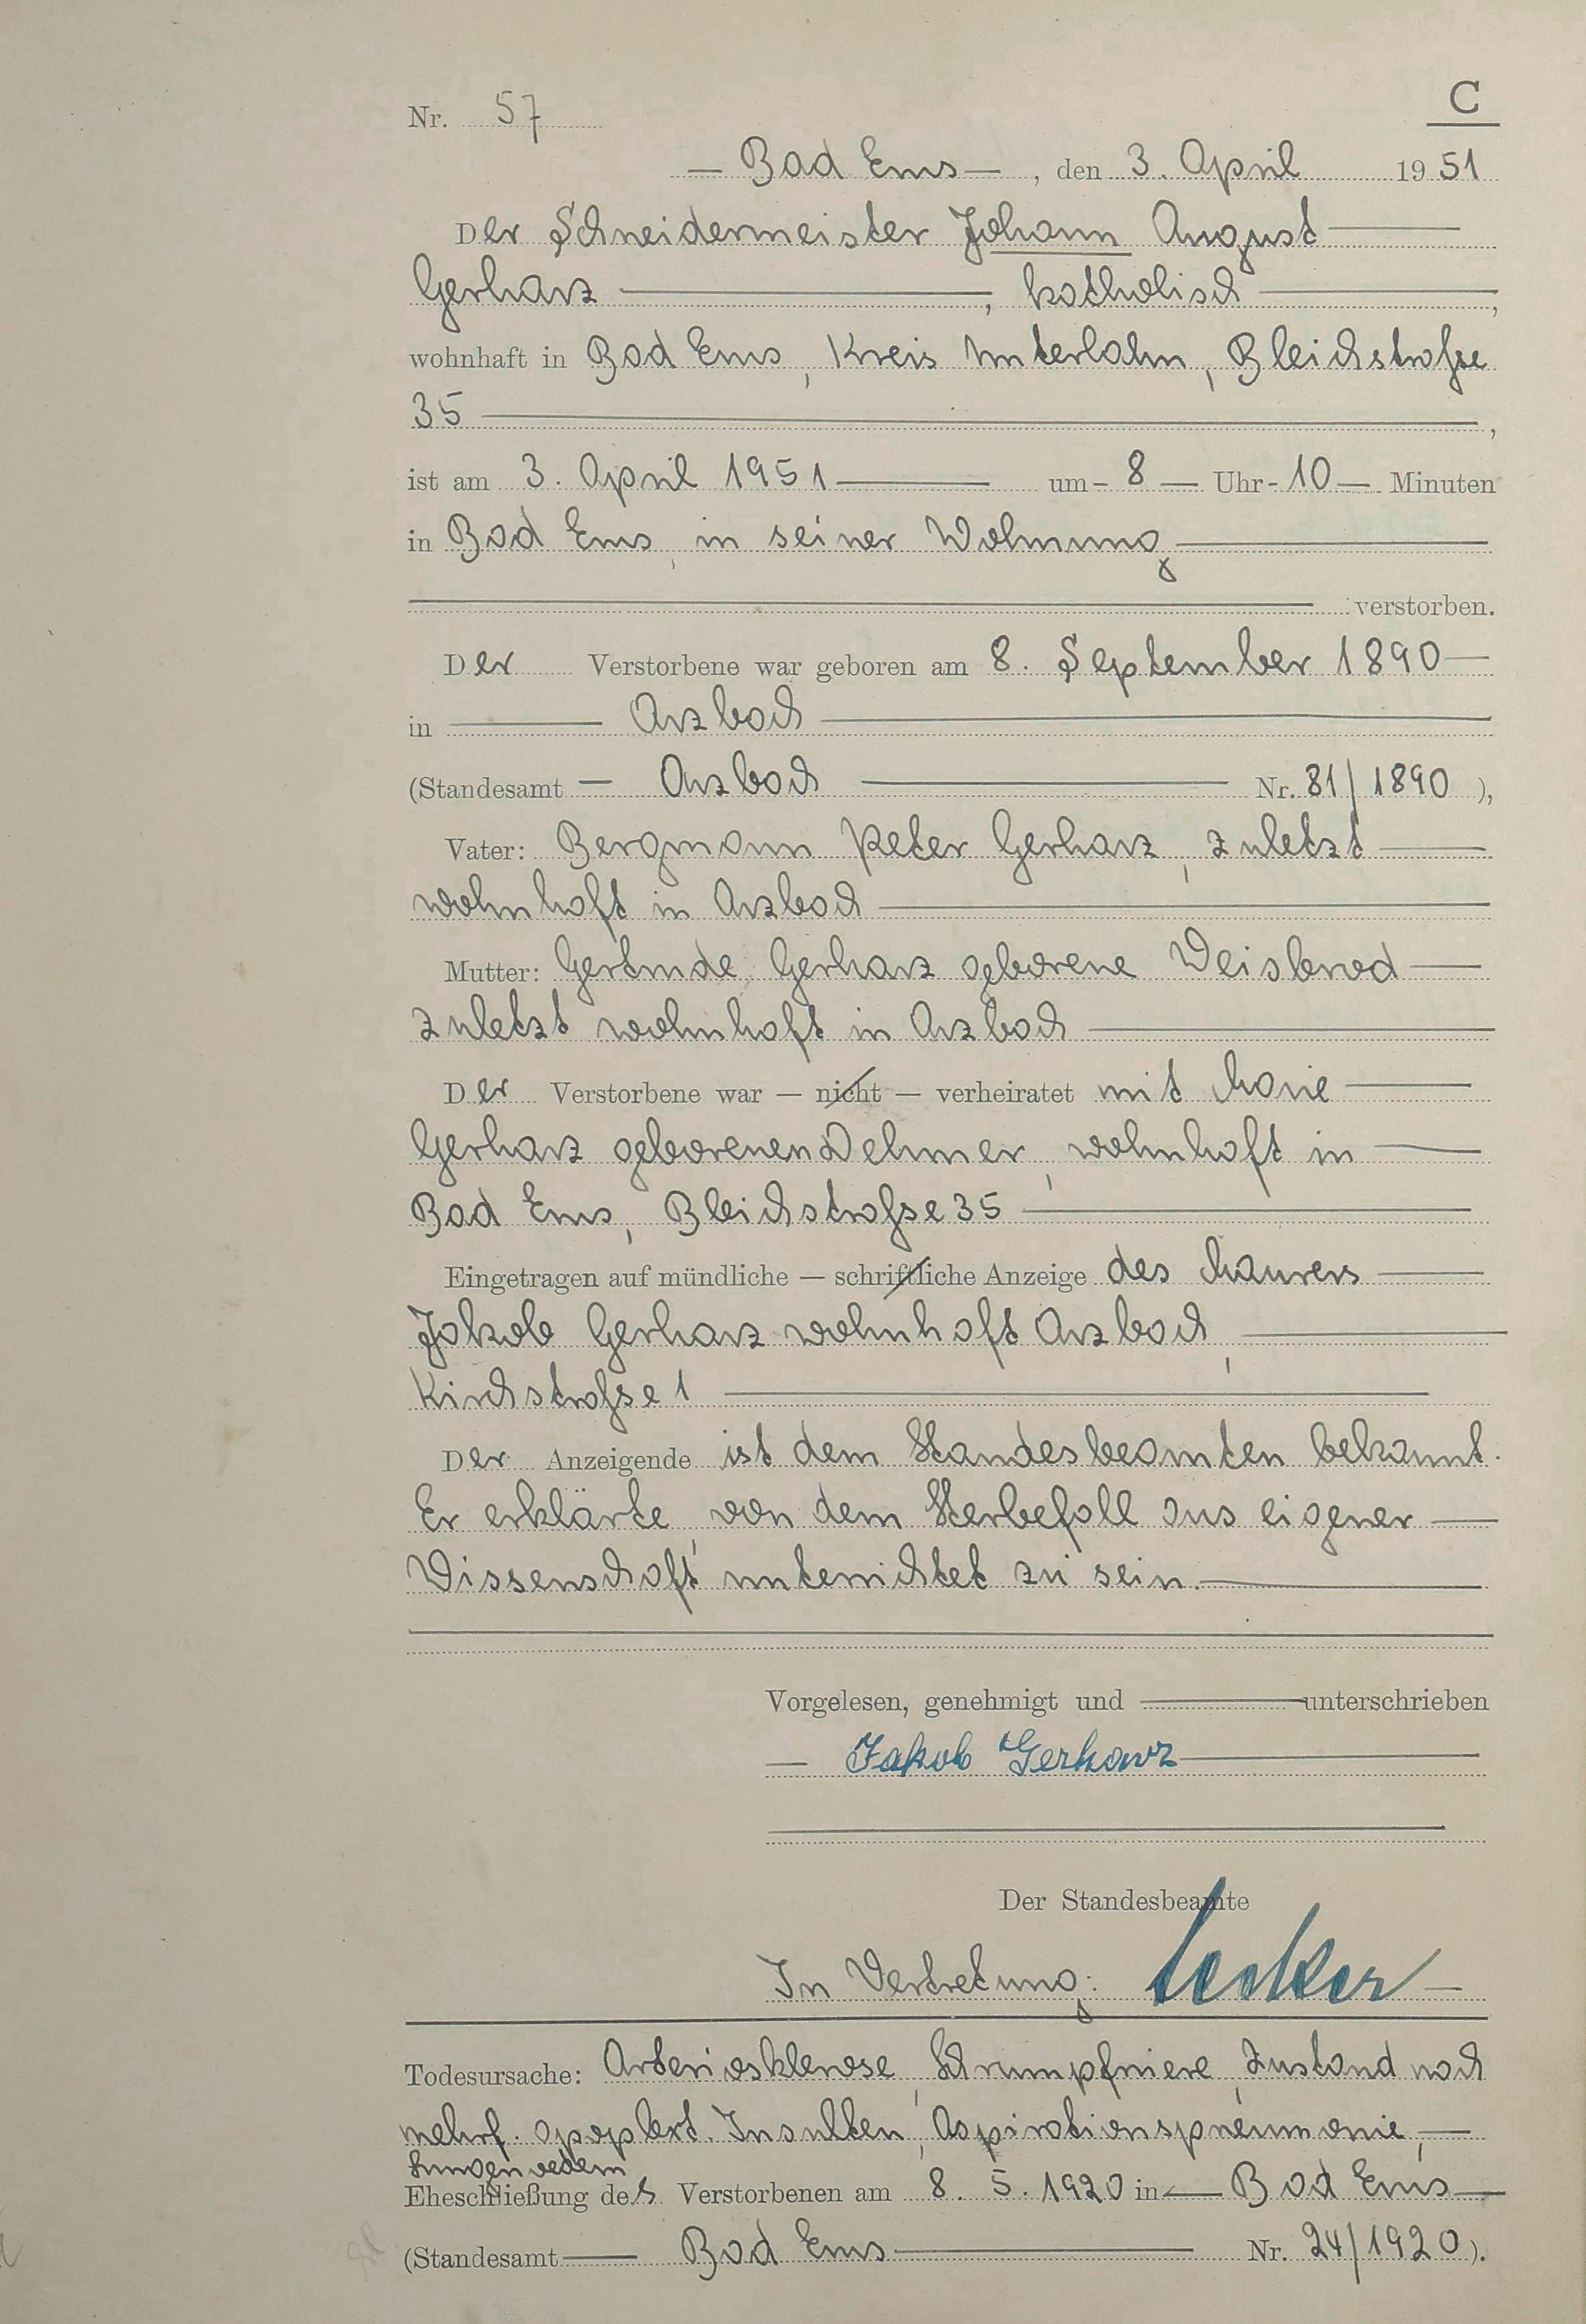 C
Nr. 57
— Bad Ems —, den 3. April 1951
Der Schneidermeister Johann August —
Gerharz —, katholisch —,
wohnhaft in Bad Ems, Kreis Unterlahn, Bleichstraße
35 —,
ist am 3. April 1951 — um - 8 — Uhr - 10 — Minuten
in Bad Ems, in seiner Wohnung —
— verstorben.
Der Verstorbene war geboren am 8. September 1890 —
in — Arzbach —
(Standesamt — Arzbach — Nr. 81/1890),
Vater: Bergmann Peter Gerharz, zuletzt —
wohnhaft in Arzbach —
Mutter: Gertrude Gerharz geborene Weisbrod —
zuletzt wohnhaft in Arzbach —
Der Verstorbene war — nicht — verheiratet mit Marie —
Gerharz geborenen Dehmer, wohnhaft in —
Bad Ems, Bleichstraße 35 —
Eingetragen auf mündliche — schriftliche Anzeige des Maurers —
Jakob Gerharz wohnhaft Arzbach, —
Kirchstraße 1 —
Der Anzeigende ist dem Standesbeamten bekannt.
Er erklärte, von dem Sterbefall aus eigener —
Wissenschaft unterrichtet zu sein. —
Vorgelesen, genehmigt und — unterschrieben
— Jakob Gerharz —
Der Standesbeamte
In Vertretung: —
Todesursache: Arteriosklerose, Schrumpfniere, Zustand nach
mehrf. apoplext. Insulten, Aspirationspneumonie, —
Lungenoedem
Eheschließung des Verstorbenen am 8. 5. 1920 in — Bad Ems —
(Standesamt — Bad Ems — Nr. 24/1920).